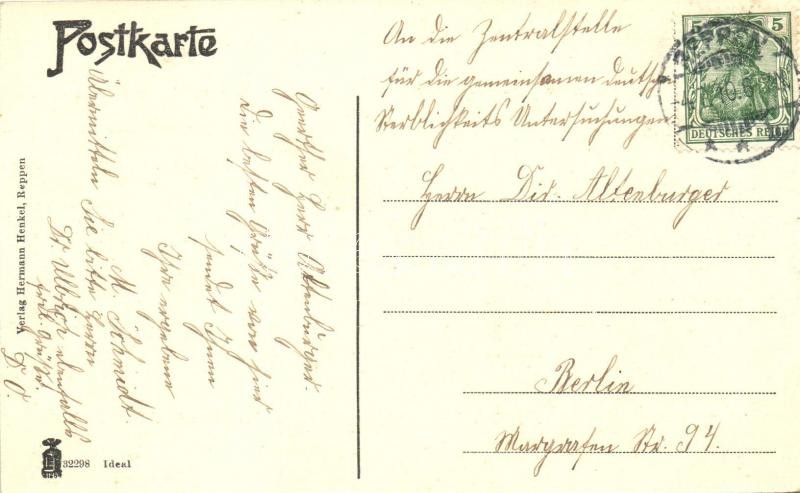 Postkarte
An die Zentralstelle
für die gemeinsamen deutsche
Sterblichkeits Untersuchungen
Herrn Dir. Altenburger
Berlin
Margrafen Str. 94.
5 5
DEUTSCHES REICH
REPPEN
Geerther Herr Altenburger.
Die besten Grüße von hier
sendet Ihnen
Ihre ergebene
M. Schmidt.
Übermitteln Sie bitte Herrn
Dr Ullrich ebenfalls
Grüße.
D. O.
Verlag Hermann Henkel, Reppen
32298 Ideal